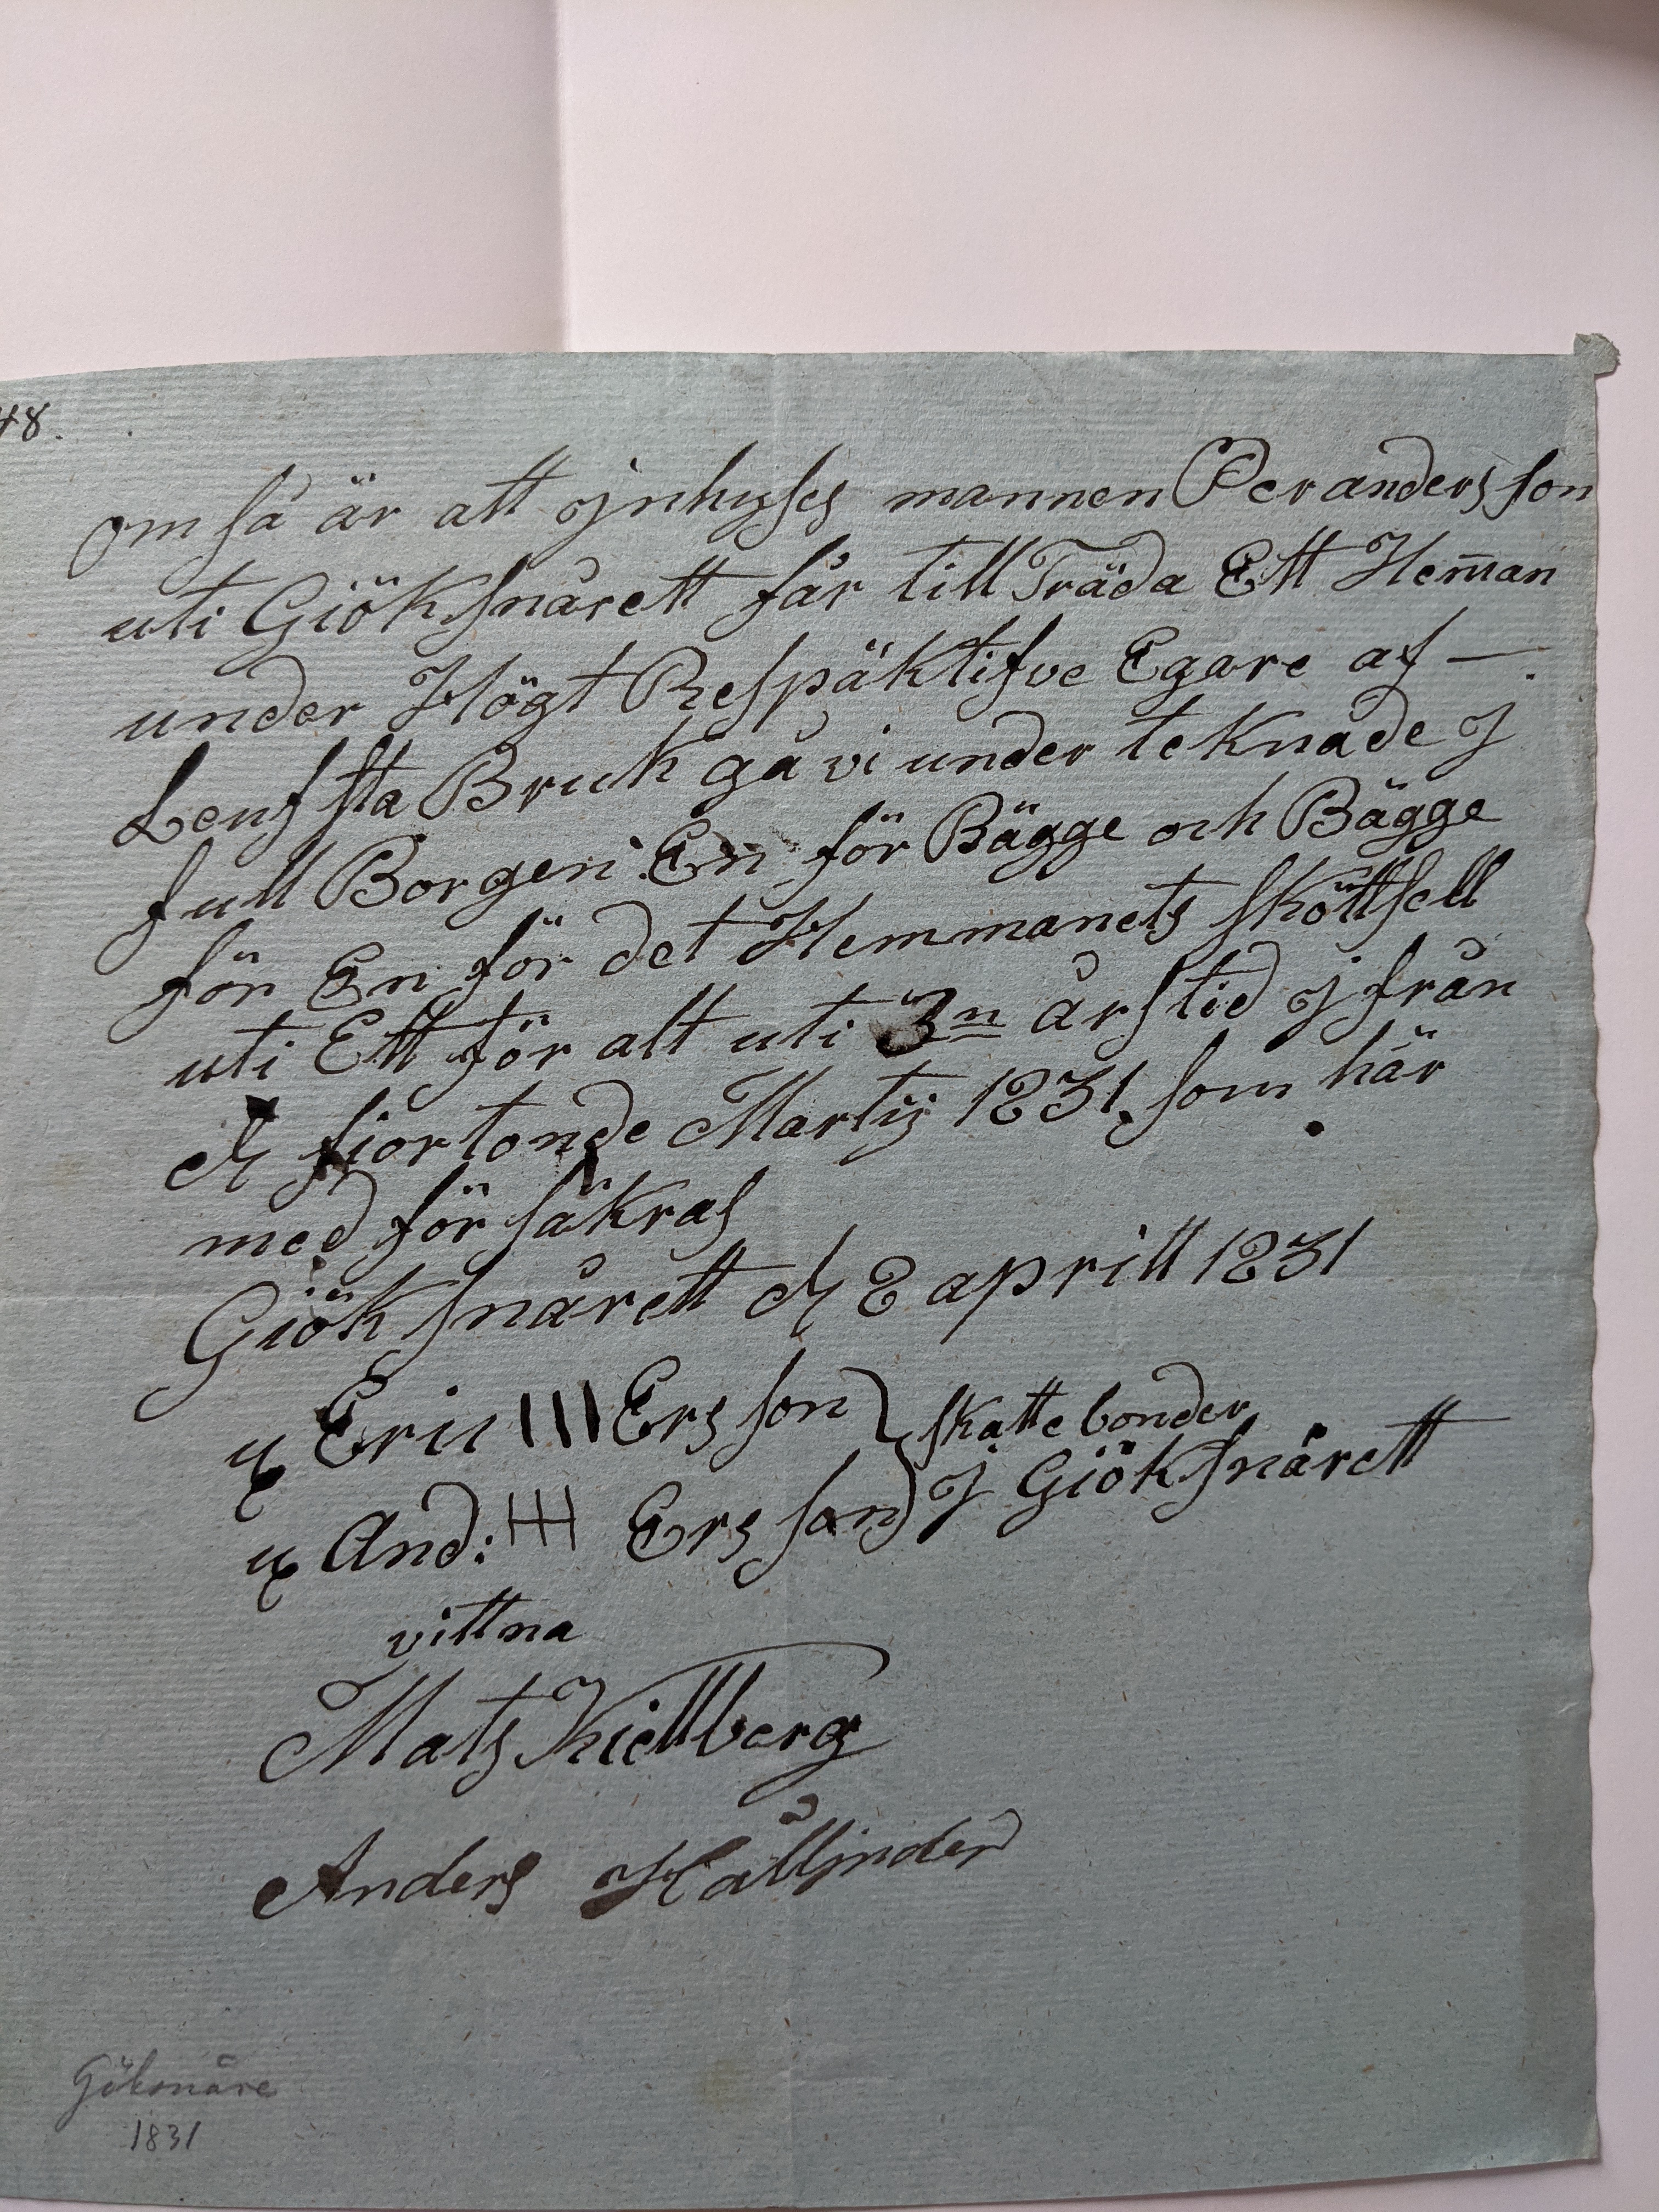 48.
om så är att jnhyses mannen Per anders son
uti Giöksnårett får till Träda Ett Hem̄an
under Högt Respäktifve Egare af —
Leufsta Bruk gå vi under teknade J
full Borgen En för Bägge och Bägge
för En för det Hemmanets sköttsell
uti Ett för alt uti 3n årstid J från
d fjortonde Martij 1831 som här
med för säkras
Giöksnårett d 8 aprill 1831
Eric III Ers son } skatte bönder
And: Ers son J Giöksnårett
vittna
Mats Kiellberg
Anders Hålljnder
Giöksnåre
1831